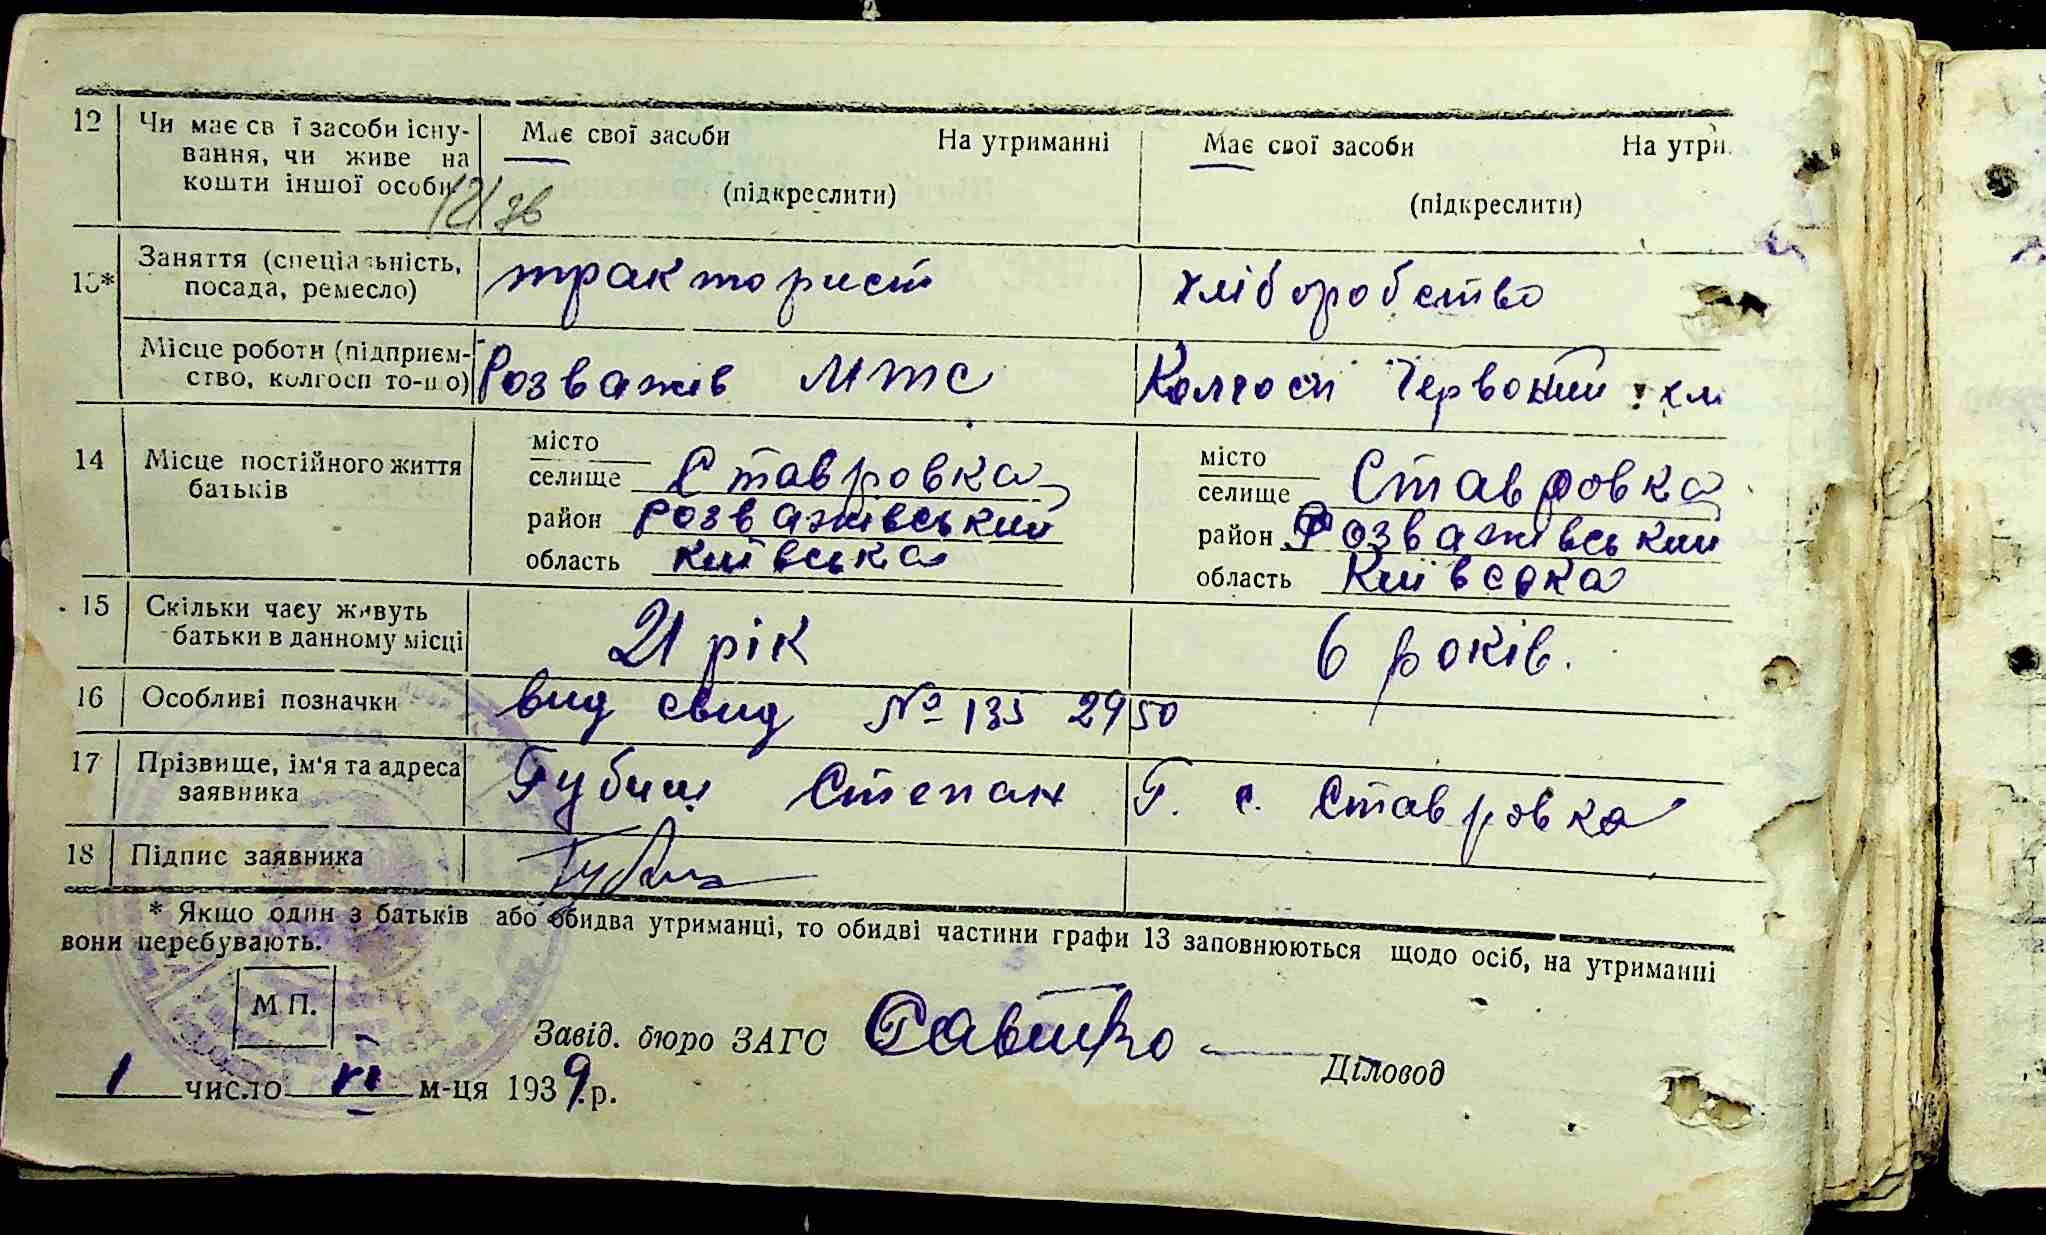 12 Чи має св ї засоби існу- Має свої засоби На утриманні Має свої засоби На утри.
вання, чи живе на
кошти іншої особи (підкреслити) (підкреслити)
13* Заняття (спеціальність, тракторист хліборобство
посада, ремесло)
Місце роботи (підприєм- Розважів МТС Колгосп Червоний хл
ство, колгосп то-що)
14 Місце постійного життя місто місто
батьків селище Ставровка селище Ставровка
район Розважівський район Розважівський
область київська область Київська
15 Скільки часу живуть 21 рік 6 років.
батьки в данному місці
16 Особливі позначки вид свид № 135 2950
17 Прізвище, ім'я та адреса Губиш Степан Г. с. Ставровка
заявника
18 Підпис заявника
* Якшо один з батьків або обидва утриманці, то обидві частини графи 13 заповнюються щодо осіб, на утриманні
вони перебувають.
М П.
Завід. бюро ЗАГС Діловод
1 число VI м-ця 1939 р.